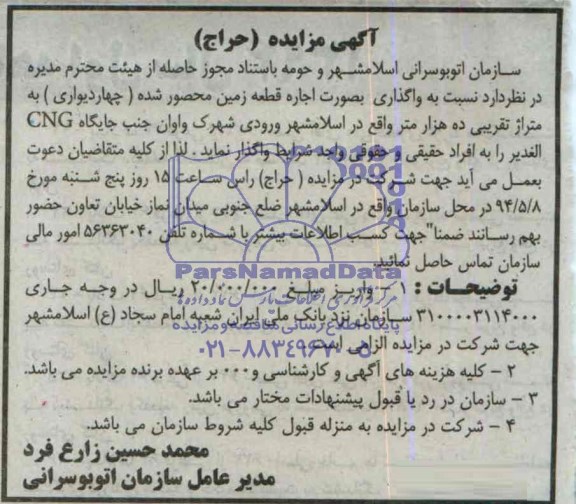 آگهی مزایده (حراج)
سازمان اتوبوسرانی اسلامشهر و حومه باستناد مجوز حاصله از هیئت محترم مدیره
در نظردارد نسبت به واگذاری بصورت اجاره قطعه زمین محصور شده ( چهاردیواری ) به
متراژ تقریبی ده هزار متر واقع در اسلامشهر ورودی شهرک واوان جنب جایگاه CNG
الغدیر را به افراد حقیقی و حقوقی واجد شرایط واگذار نماید . لذا از کلیه متقاضیان دعوت
بعمل می آید جهت شرکت در مزایده ( حراج) راس ساعت ۱۵ روز پنج شنبه مورخ
۹۴/۵/۸ در محل سازمان واقع در اسلامشهر ضلع جنوبی میدان نماز خیابان تعاون حضور
بهم رسانند ضمنا"جهت کسب اطلاعات بیشتر با شماره تلفن ۵۶۳۶۳۰۴۰ امور مالی
سازمان تماس حاصل نمائید.
ParsNamadData
توضیحات : ۱ – واریز مبلغ ۲۰/۰۰۰/۰۰۰ ریال در وجه جاری
مرکز فرآوری اطلاعات پارس نماد داده ها
۳۱۰۰۰۰۳۱۱۴۰۰۰ سازمان نزد بانک ملی ایران شعبه امام سجاد (ع) اسلامشهر
پایگاه اطلاع رسانی مناقصه و مزایده
جهت شرکت در مزایده الزامی است.
۰۲۱-۸۸۳۴۹۶۷۰
۲ – کلیه هزینه های آگهی و کارشناسی و۰۰۰ بر عهده برنده مزایده می باشد.
۳ – سازمان در رد یا قبول پیشنهادات مختار می باشد.
۴ – شرکت در مزایده به منزله قبول کلیه شروط سازمان می باشد.
محمد حسین زارع فرد
مدیر عامل سازمان اتوبوسرانی